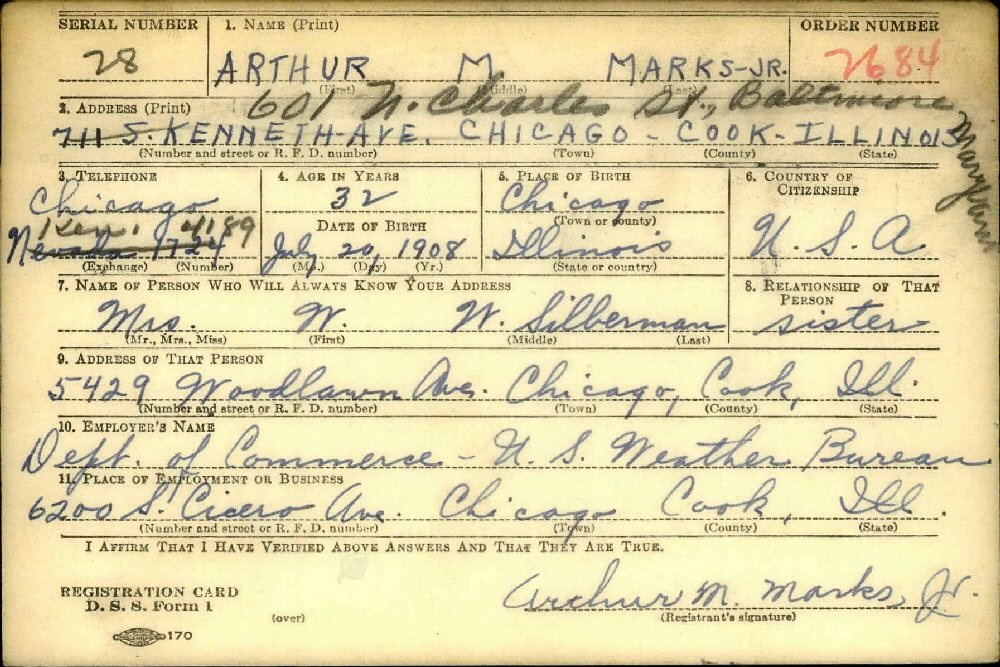 SERIAL NUMBER 1. NAME (Print) ORDER NUMBER
28 ARTHUR M MARKS-JR. 2684
(First) (Middle) (Last)
601 N. Charles St., Baltimore
Maryland
2. ADDRESS (Print)
711 S. KENNETH-AVE. CHICAGO - COOK-ILLINOIS
(Number and street or R. F. D. number) (Town) (County) (State)
3. TELEPHONE 4. AGE IN YEARS 5. PLACE OF BIRTH 6. COUNTRY OF CITIZENSHIP
Chicago 32 Chicago
(Town or county)
Ken. 4189 DATE OF BIRTH
Nevada 1724 July 20, 1908 Illinois U. S. A.
(Exchange) (Number) (Mo.) (Day) (Yr.) (State or country)
7. NAME OF PERSON WHO WILL ALWAYS KNOW YOUR ADDRESS 8. RELATIONSHIP OF THAT PERSON
Mrs. W. W. Silberman sister
(Mr., Mrs., Miss) (First) (Middle) (Last)
9. ADDRESS OF THAT PERSON
5429 Woodlawn Ave. Chicago, Cook, Ill.
(Number and street or R. F. D. number) (Town) (County) (State)
10. EMPLOYER'S NAME
Dept. of Commerce - U. S. Weather Bureau
11. PLACE OF EMPLOYMENT OR BUSINESS
6200 S. Cicero Ave. Chicago Cook, Ill.
(Number and street or R. F. D. number) (Town) (County) (State)
I AFFIRM THAT I HAVE VERIFIED ABOVE ANSWERS AND THAT THEY ARE TRUE.
REGISTRATION CARD
D. S. S. Form 1
(over)
Arthur M. Marks, Jr.
(Registrant's signature)
170